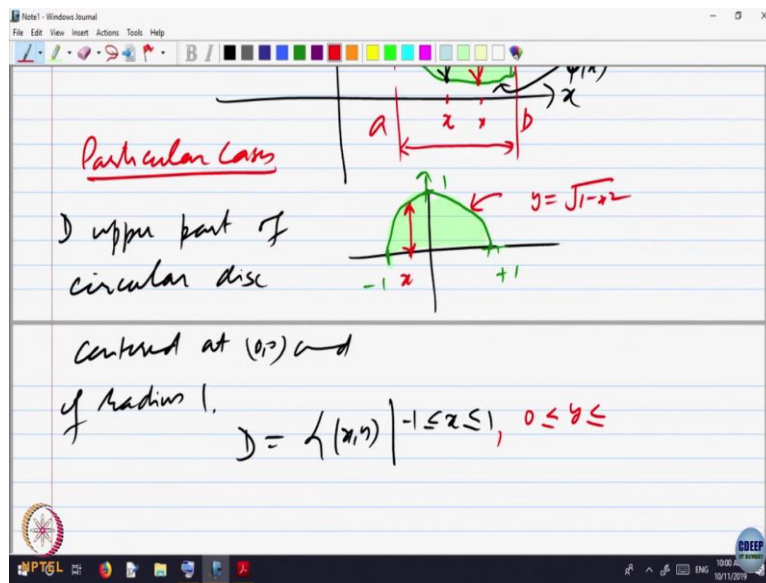 Note1 - Windows Journal
File Edit View Insert Actions Tools Help
B I
ψ(x)
x
a x x b
Particular Cases
1 y = √1-x2
D upper part of
circular disc
-1 x +1
centered at (0,0) and
of radius 1.
D = { (x,y) | -1 ≤ x ≤ 1, 0 ≤ y ≤
NPTEL
CDEEP
IIT BOMBAY
ENG
10/11/2019